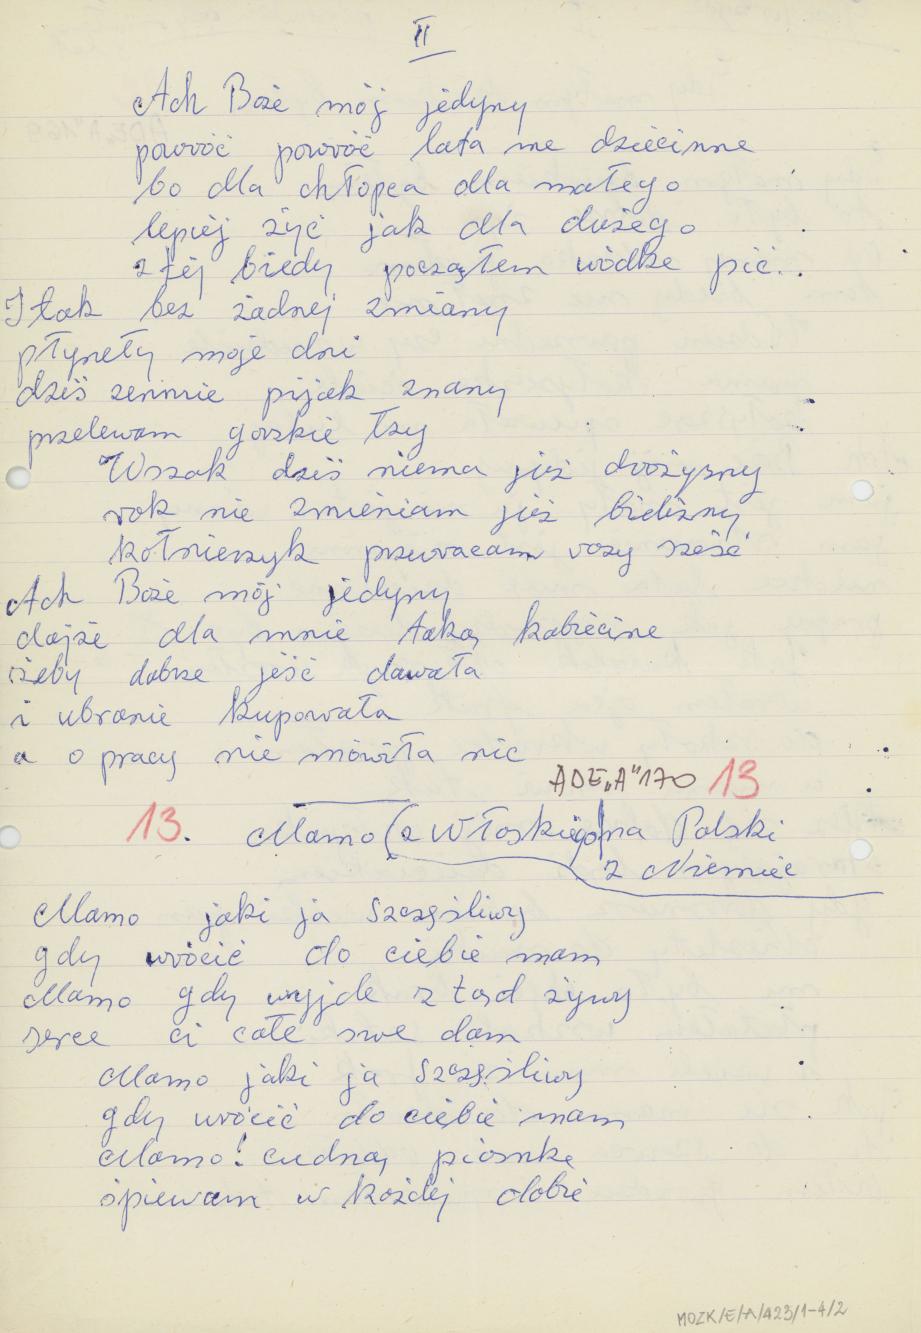 II
Ach Boże mój jedyny
powróć powróć lata me dziecinne
bo dla chłopca dla małego
lepiej żyć jak dla dużego
z tej biedy począłem wódke pić.
I tak bez żadnej zmiany
płyneły moje dni
dziś zemnie pijak znany
przelewam gorzkie łzy
Wszak dziś niema już drożyzny
rok nie zmieniam już bielizny
kołnierzyk przewracam razy sześć
Ach Boże mój jedyny
dajże dla mnie taką kobiecine
żeby dobrze jeść dawała
i ubranie kupowała
a o pracy nie mówiła nic
ADE„A"170 13
13. Mamo (z Włoskiego) na Polski
z Niemiec
Mamo jaki ja szczęśliwy
gdy wrócić do ciebie mam
Mamo gdy wyjde z tąd żywy
serce ci całe swe dam
Mamo jaki ja szczęśliwy
gdy wrócić do ciebie mam
Mamo! cudną piosnkę
śpiewam w każdej dobie
MOZK/E/A/423/1-4/2